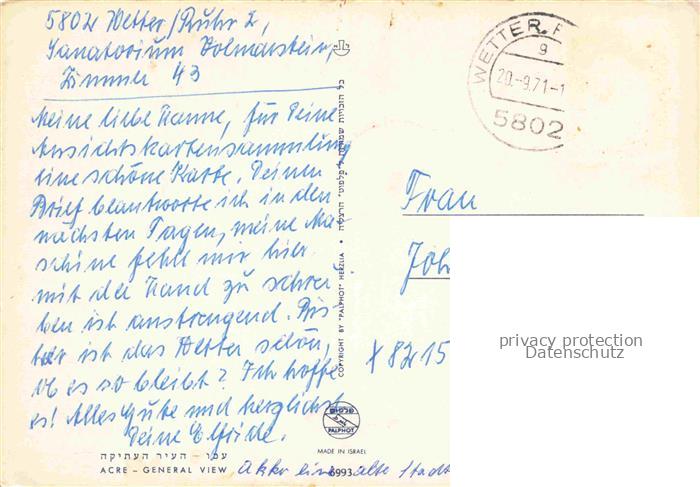 5802 Wetter/Ruhr 2,
Sanatorium Volmarstein,
Zimmer 43
Meine liebe Hanne, für Deine
Ansichtskartensammlung
eine schöne Karte. Deinen
Brief beantworte ich in den
nächsten Tagen, meine Ma-
schine fehlt mir hier.
mit der Hand zu schrei-
ben ist anstrengend. Bis-
her ist das Wetter schön,
ob es so bleibt? Ich hoffe
es! Alles Gute und herzlichst
Deine Elfride.
עכו - העיר העתיקה
ACRE – GENERAL VIEW
Akko eine alte Stadt
כל הזכויות שמורות ל"פלפוט" הרצליה
COPYRIGHT BY "PALPHOT" HERZLIA
פלפוט
PALPHOT
MADE IN ISRAEL
6993
WETTER, R
g
20.-9.71-1
5802
Frau
Joh
X 8215
privacy protection
Datenschutz